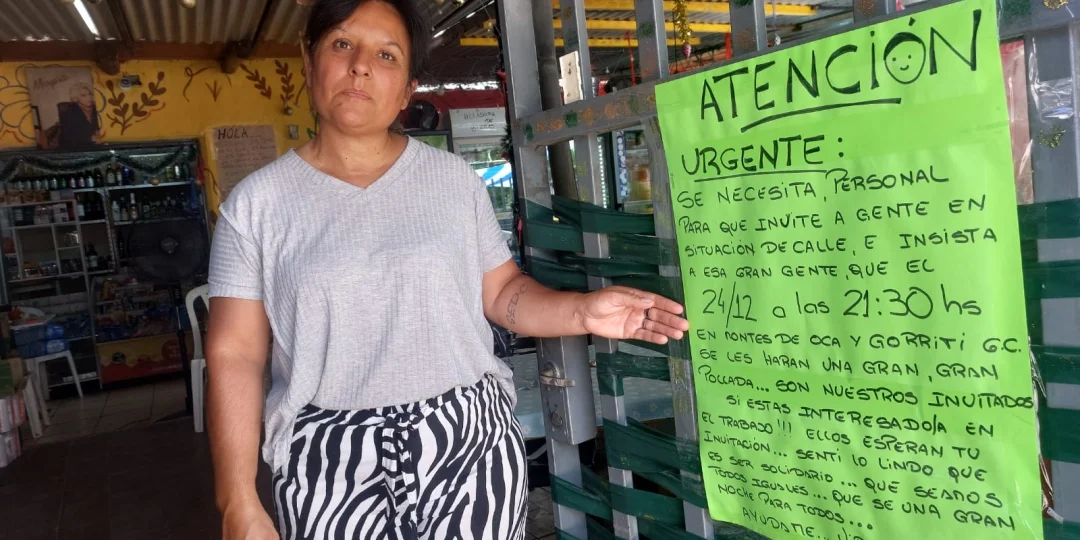 HOLA
ATENCIÓN
URGENTE:
SE NECESITA, PERSONAL
PARA QUE INVITE A GENTE EN
SITUACIÓN DE CALLE, E INSISTA
A ESA GRAN GENTE, QUE EL
24/12 a las 21:30 hs
EN MONTES DE OCA Y GORRITI G.C.
SE LES HARAN UNA GRAN, GRAN
POLLADA... SON NUESTROS INVITADOS
SI ESTAS INTERESADO/A EN
EL TRABAJO!!! ELLOS ESPERAN TU
INVITACIÓN... SENTI LO LINDO QUE
ES SER SOLIDARIO... QUE SEAMOS
TODOS IGUALES... QUE SE UNA GRAN
NOCHE PARA TODOS...
AYUDAME...